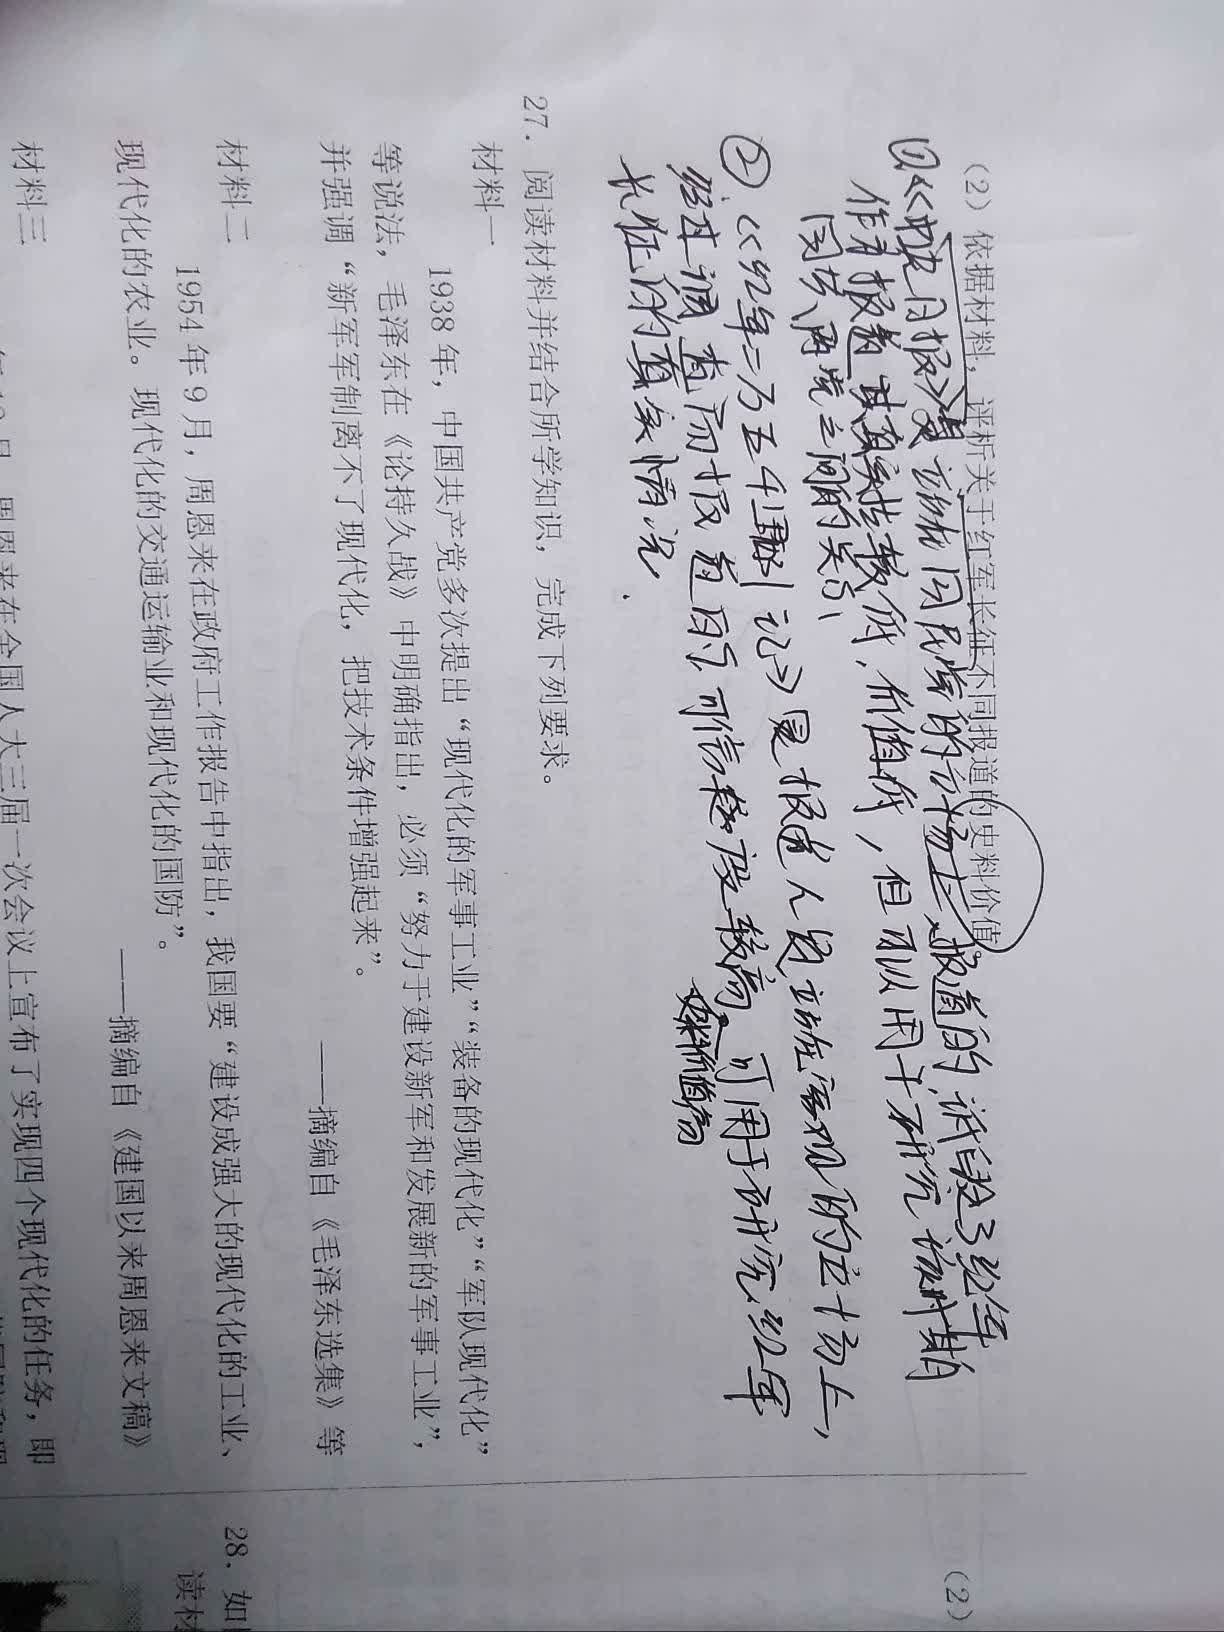 （2）依据材料，评析关于红军长征不同报道的史料价值
①《日报》是站在国民党的立场上，报道的，诋毁了红军
作者报道其真实性较低，价值低，但可以用于研究该时期
国共两党之间的关系
②《红军二万五千里》是报道人员站在客观的立场上，
经过调查而报道的可信程度较高，史料价值高 可用于研究红军
长征的真实情况.
27. 阅读材料并结合所学知识，完成下列要求。
材料一
1938 年，中国共产党多次提出“现代化的军事工业”“装备的现代化”“军队现代化”
等说法，毛泽东在《论持久战》中明确指出，必须“努力于建设新军和发展新的军事工业”，
并强调“新军军制离不了现代化，把技术条件增强起来”。
——摘编自《毛泽东选集》等
材料二
1954 年 9 月，周恩来在政府工作报告中指出，我国要“建设成强大的现代化的工业、
现代化的农业。现代化的交通运输业和现代化的国防”。
——摘编自《建国以来周恩来文稿》
材料三
周恩来在全国人大三届一次会议上宣布了实现四个现代化的任务，即
（2）
28. 如
读材